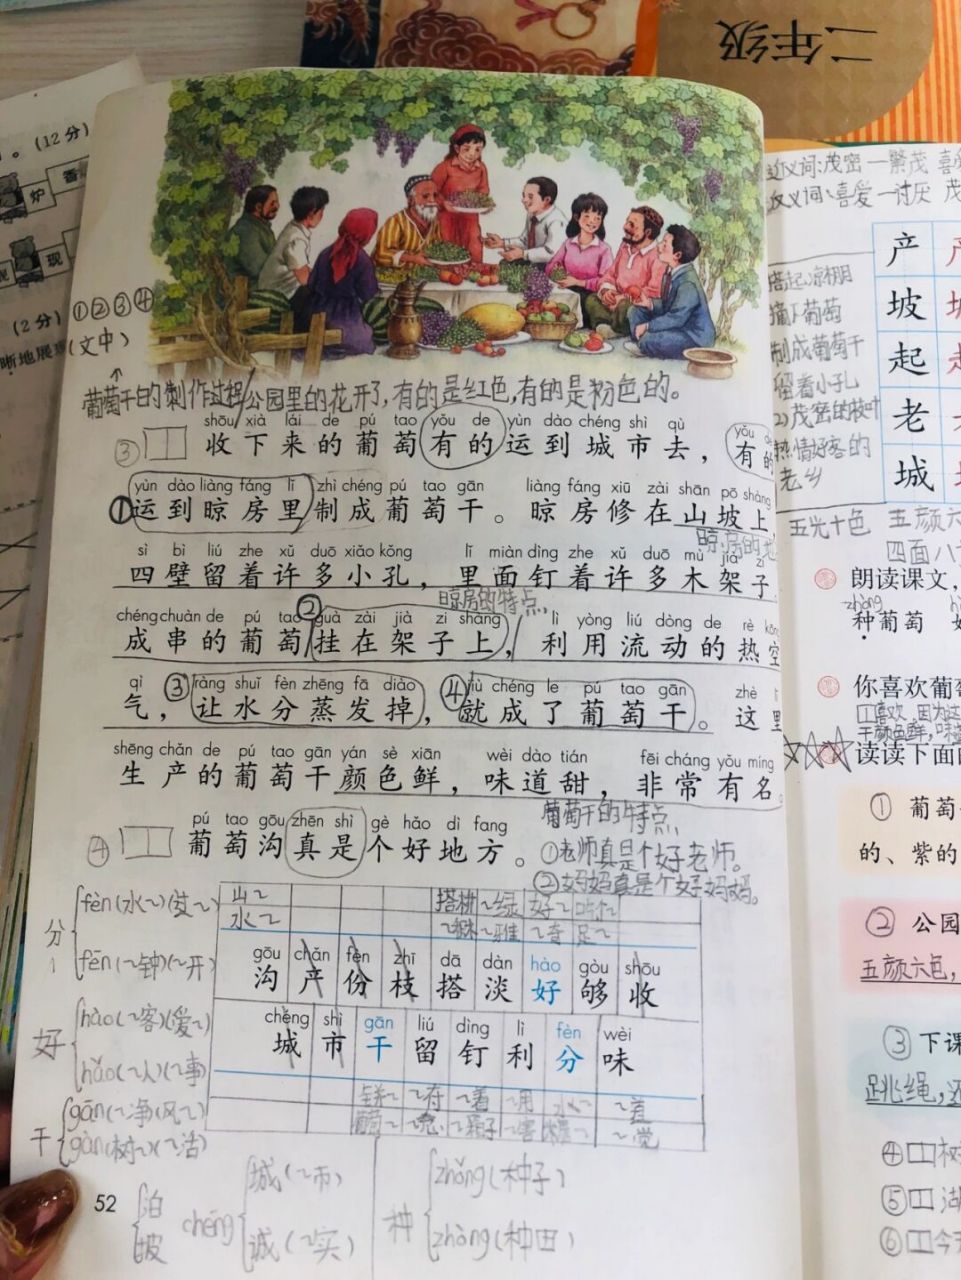 二年级
。(12分)
炉
香
现
(2分)
晰地展现
①②③④
(文中)
葡萄干的制作过程
公园里的花开了,有的是红色,有的是粉色的。
shōu xià lái de pú tao yǒu de yùn dào chéng shì qù yǒu de
③ 收下来的葡萄有的运到城市去,有的
yùn dào liàng fáng lǐ zhì chéng pú tao gān liàng fáng xiū zài shān pō shàng
①运到晾房里制成葡萄干。晾房修在山坡上,
晾房的地
sì bì liú zhe xǔ duō xiǎo kǒng lǐ miàn dìng zhe xǔ duō mù jià zi
四壁留着许多小孔,里面钉着许多木架子
晾房的特点
chéng chuàn de pú tao guà zài jià zi shàng lì yòng liú dòng de rè kōng
成串的葡萄②挂在架子上,利用流动的热空
qì ràng shuǐ fèn zhēng fā diào jiù chéng le pú tao gān zhè lǐ
气,③让水分蒸发掉,④就成了葡萄干。这里
shēng chǎn de pú tao gān yán sè xiān wèi dào tián fēi cháng yǒu míng
生产的葡萄干颜色鲜,味道甜,非常有名。
葡萄干的特点
pú tao gōu zhēn shì gè hǎo dì fang
④ 葡萄沟真是个好地方。
①老师真是个好老师。
②妈妈真是个好妈妈。
分 fèn(水~)
fēn(~钟)(~开)
山~ 搭棚 ~绿 好~
水~ ~雅 ~奇 足~
gōu chǎn fèn zhī dā dàn hào gòu shōu
沟 产 份 枝 搭 淡 好 够 收
chéng shì gān liú dìng lì fèn wèi
城 市 干 留 钉 利 分 味
~着 ~用 水~
葡萄~ ~害 ~觉
好 hào(~客)(爱~)
hǎo(~人)(~事)
干 gān(~净)(风~)
gàn(树~)(~活)
52
泊
坡
chéng 城(~市)
诚(~实)
种 zhǒng(种子)
zhòng(种田)
近义词:茂密—繁茂
反义词:喜爱—讨厌
产
坡
起
老
城
搭起凉棚
摘下葡萄
制成葡萄干
留着小孔
2)茂密的枝叶
热情好客的
老乡
五光十色 五颜六
四面八
朗读课文,
zhòng
种葡萄
你喜欢葡萄
喜欢,因为这
干颜色鲜,味道
读读下面
① 葡萄
的、紫的
② 公园
五颜六色,
③ 下课
跳绳,还
④ 树
⑤ 湖
⑥ 今天